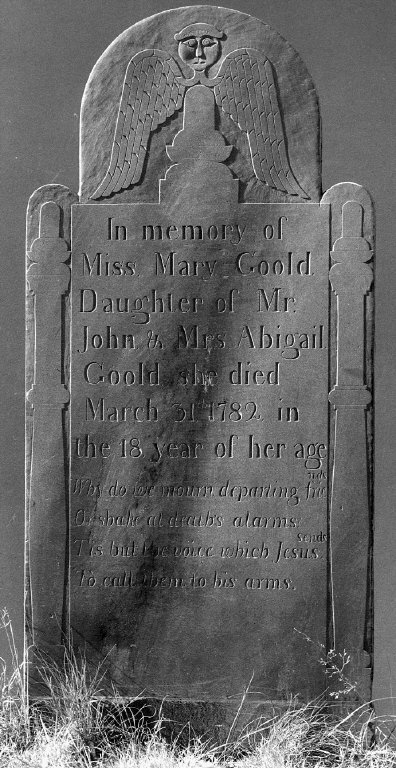 In memory of
Miss Mary Goold
Daughter of Mr.
John & Mrs Abigail
Goold, she died
March 31 1782 in
the 18 year of her age
Why do we mourn departing friends
Or shake at death's alarms.
Tis but the voice which Jesus sends
To call them to his arms.